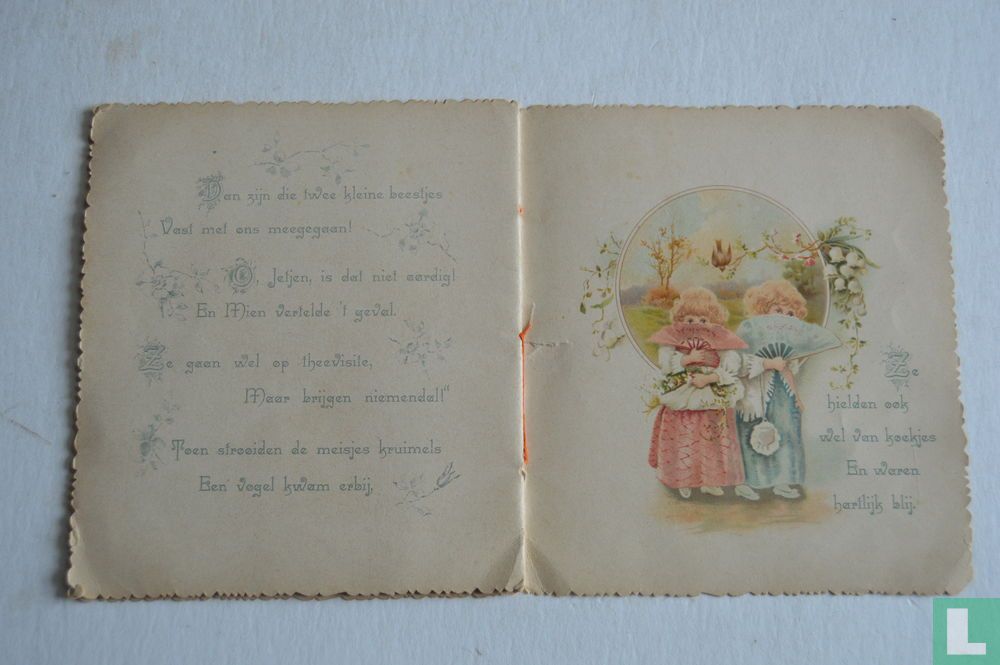 Dan zijn die twee kleine beestjes
Vast met ons meegegaan!
O, Jetjen, is dat niet aardig!
En Mien vertelde 't geval.
Ze gaan wel op theevisite,
Maar brijgen niemendal!"
Toen strooiden de meisjes kruimels
Een vogel kwam erbij,
Ze
hielden ook
wel van koekjes
En waren
hartlijk blij.
L